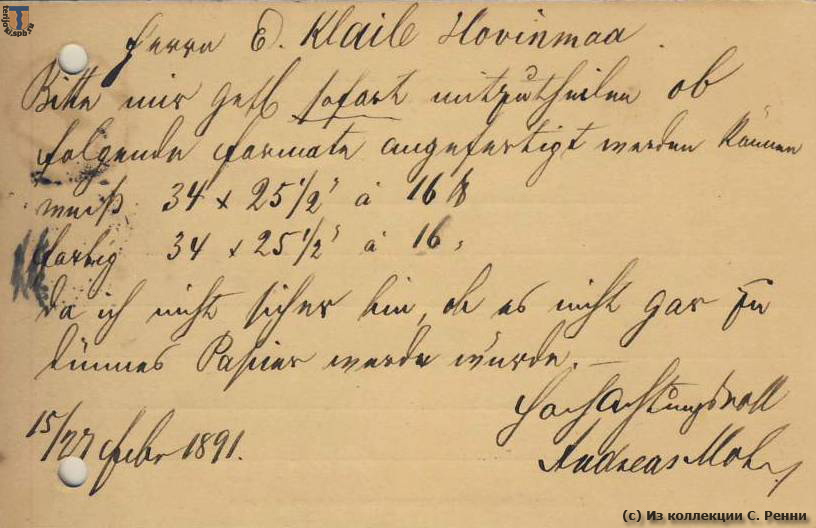 Herrn E. Klaile Hovinmaa.
Bitte mir gefl sofort mitzutheilen ob
folgende Formate angefertigt werden können
weiß 34 x 25 1/2" à 16 ℔
farbig 34 x 25 1/2" à 16 "
da ich nicht sicher bin, ob es nicht gar zu
dünnes Papier werde würde. —
Hochachtungsvoll
15/27 Febr 1891. Andreas Mohr
terijoki.spb.ru
(c) Из коллекции С. Ренни